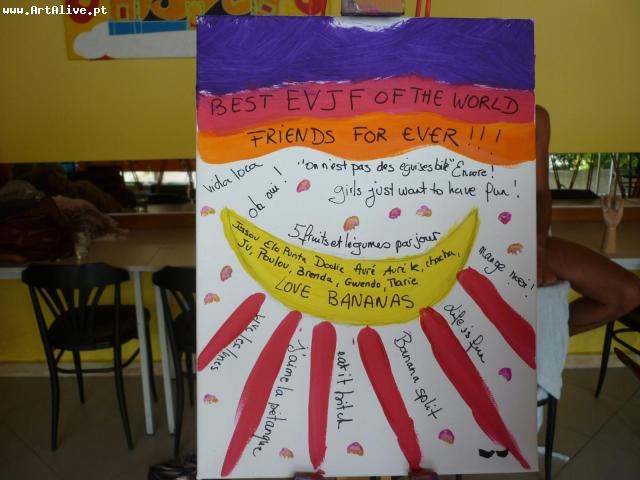 www.ArtAlive.pt
BEST EVJF OF THE WORLD
FRIENDS FOR EVER!!!
vida loca
oh oui!
"on n'est pas des aguises bite" Encore!
girls just want to have fun!
5 fruits et légumes par jour
Elo Punta Dodie Auré Auré k, chacha,
Ju, Poulou, Brenda, Gwendo, Marie
LOVE BANANAS
mange moi!
life is fun
Banana split
eat it bitch
J'aime la pétanque